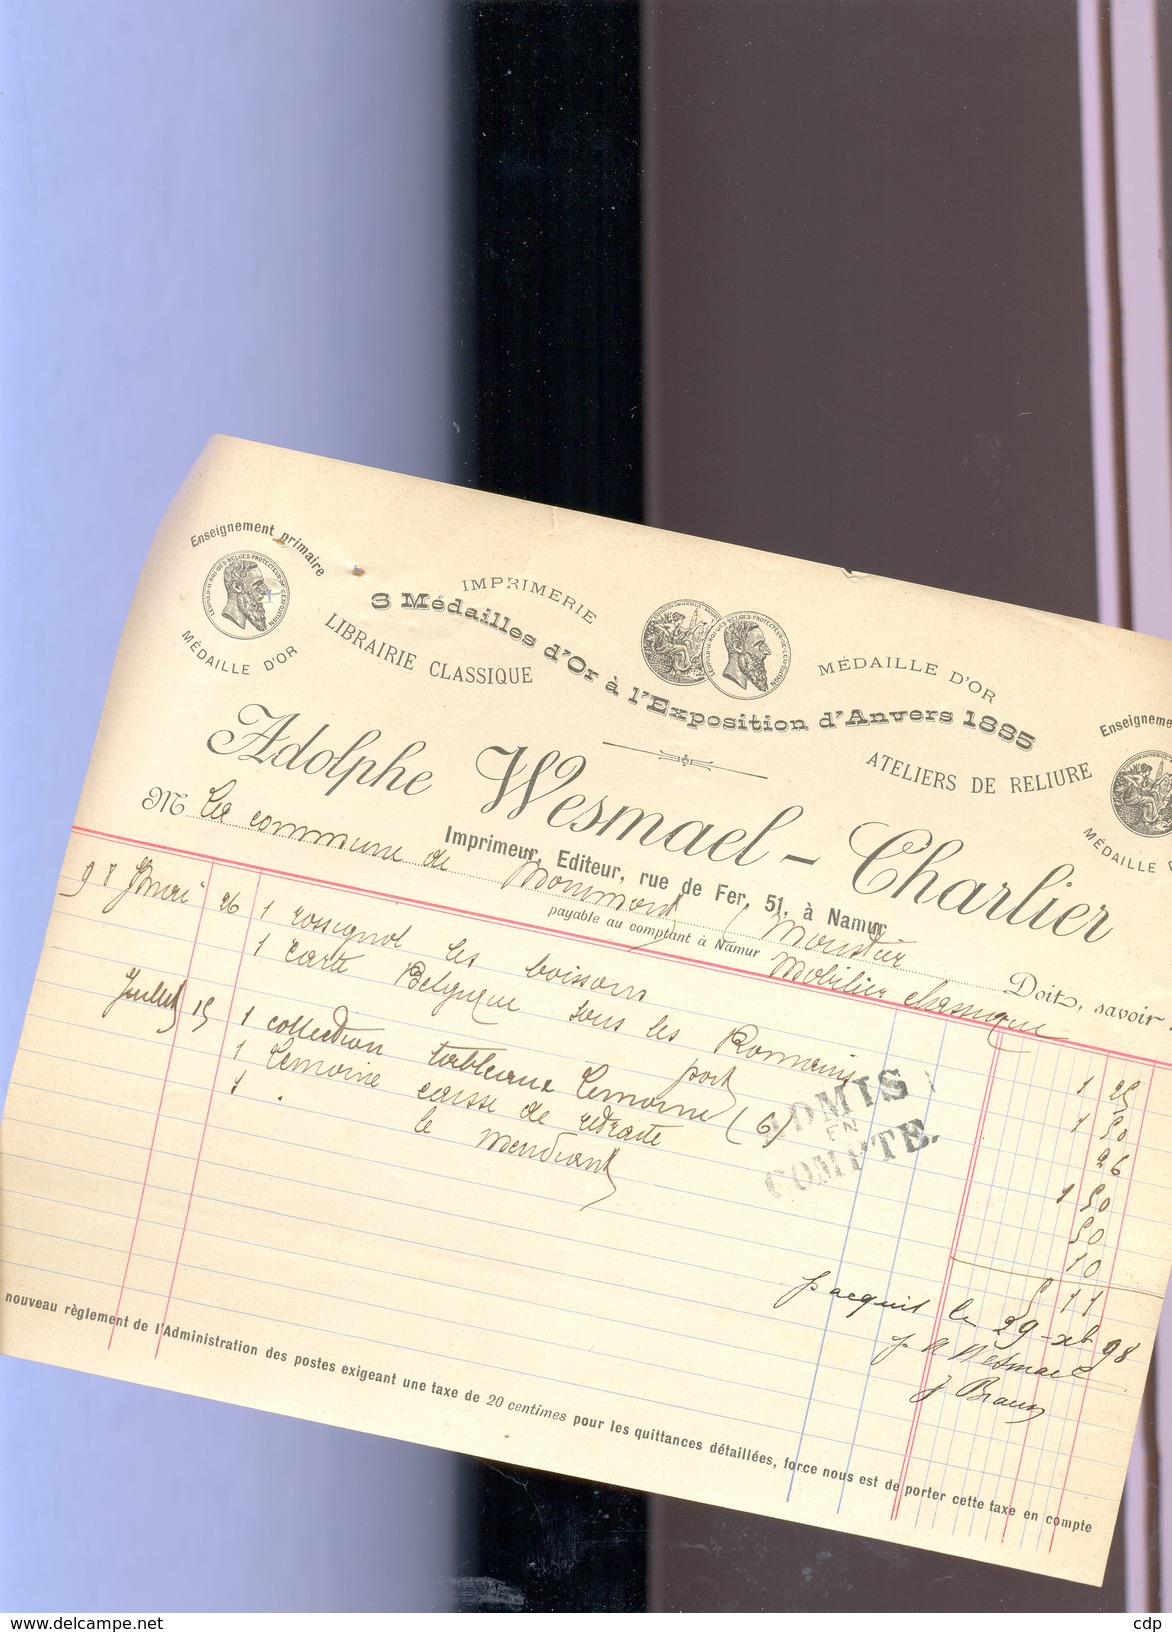 Enseignement primaire
MÉDAILLE D'OR
IMPRIMERIE
3 Médailles d'Or à l'Exposition d'Anvers 1885
LIBRAIRIE CLASSIQUE
MÉDAILLE D'OR
ATELIERS DE RELIURE
Enseigneme
MÉDAILLE
Adolphe Wesmael-Charlier
Imprimeur, Editeur, rue de Fer, 51, à Namur
payable au comptant à Namur
M La commune de (Moustier
Mobilier classique
Doit, savoir :
98 Mai 26 1 rossignol les boissons 1 25
1 carte Belgique sous les Romains 1 50
port 26
Juillet 15 1 collection tableaux Lemoine (6) 1 50
1 Lemoine caisse de retraite 50
1 . le Mendiant 10
5 11
ADMIS
EN
COMPTE.
pr acquit le 29 - sept 98
p A Wesmael
J Braun
nouveau règlement de l'Administration des postes exigeant une taxe de 20 centimes pour les quittances détaillées, force nous est de porter cette taxe en compte
www.delcampe.net
cdp